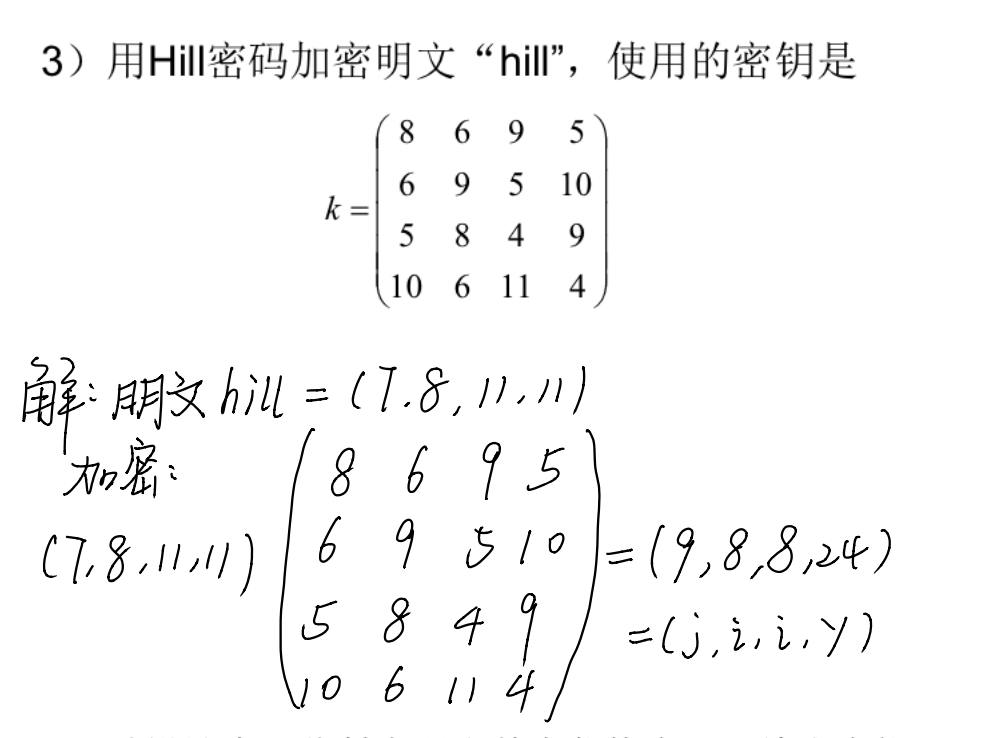 3）用Hill密码加密明文“hill”，使用的密钥是
8 6 9 5
6 9 5 10
k=
5 8 4 9
10 6 11 4
解：明文hill = (7.8,11,11)
加密：
8 6 9 5
6 9 5 10
(7,8,11,11)
5 8 4 9
10 6 11 4
=(9,8,8,24)
=(j,i,i,y)